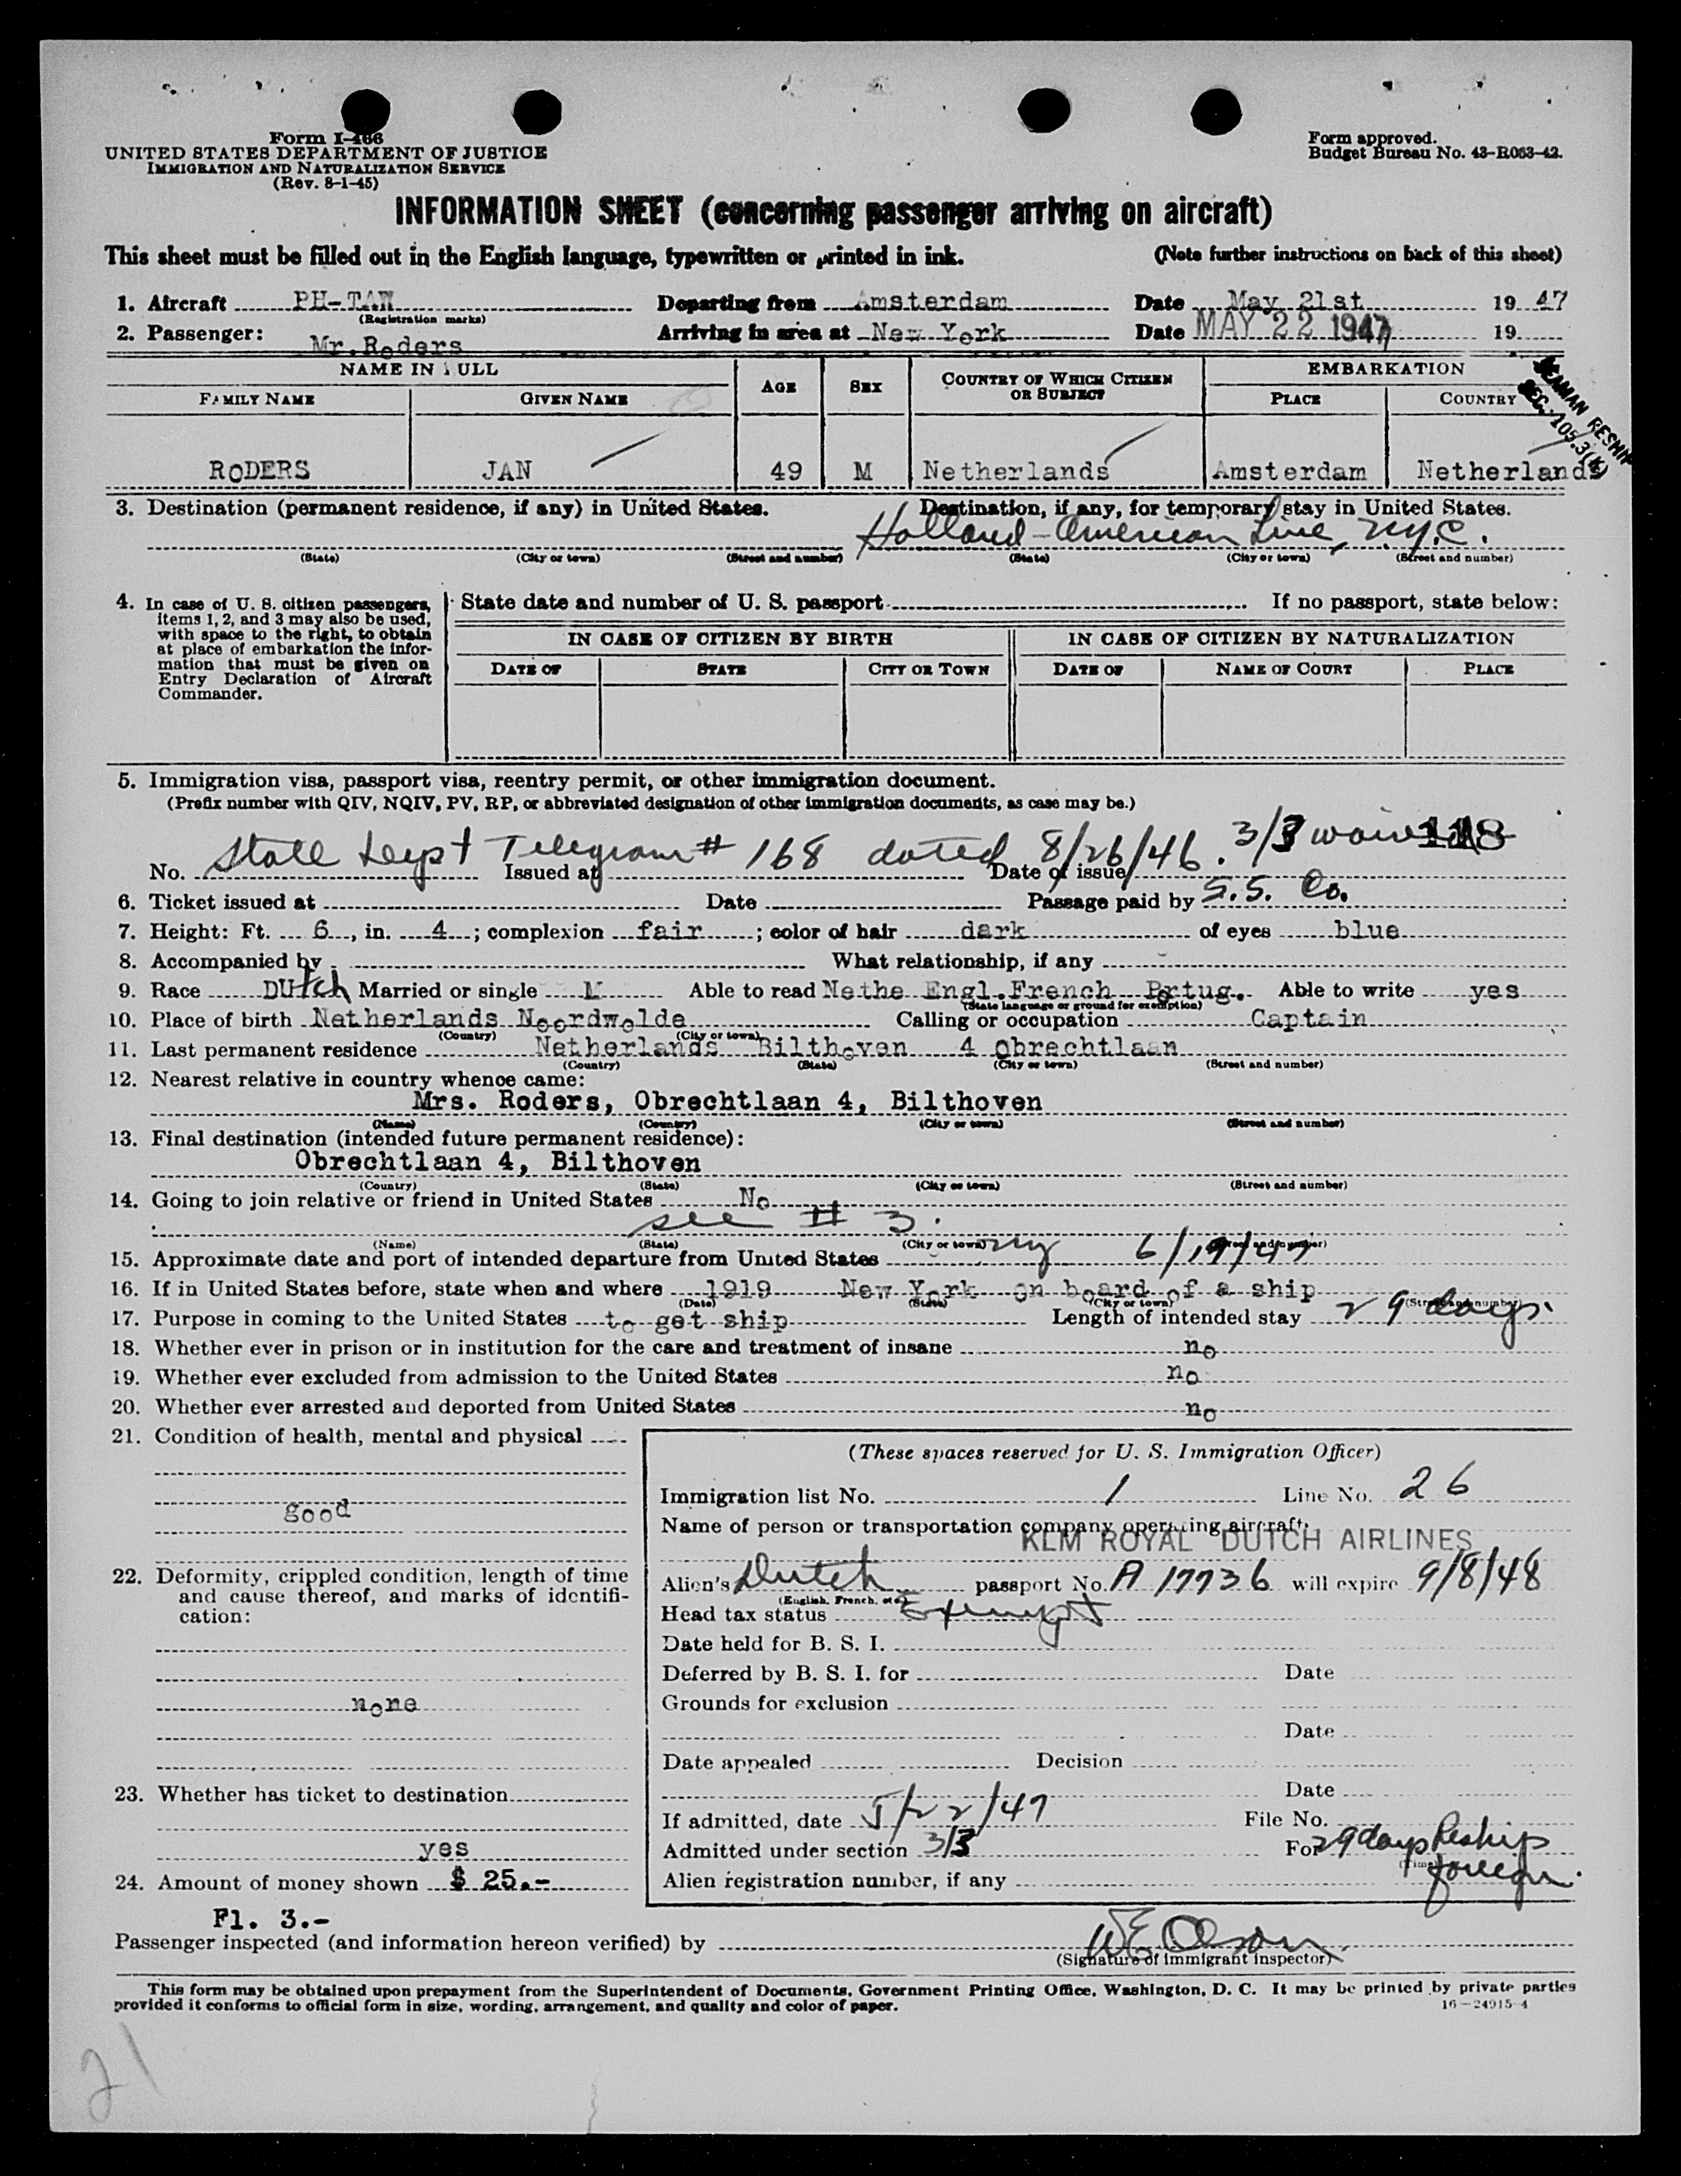 Form I-466
UNITED STATES DEPARTMENT OF JUSTICE
IMMIGRATION AND NATURALIZATION SERVICE
(Rev. 8-1-45)
Form approved.
Budget Bureau No. 43-R063-42.
INFORMATION SHEET (concerning passenger arriving on aircraft)
This sheet must be filled out in the English language, typewritten or printed in ink. (Note further instructions on back of this sheet)
1. Aircraft PH-TAW Departing from Amsterdam Date May 21st 1947
(Registration marks)
2. Passenger: Mr. Roders Arriving in area at New York Date MAY 22 1947 19
NAME IN FULL AGE SEX COUNTRY OF WHICH CITIZEN OR SUBJECT EMBARKATION
FAMILY NAME GIVEN NAME PLACE COUNTRY
SEAMAN RESHIP
SEC. 105.3(K)
RODERS JAN 49 M Netherlands Amsterdam Netherlands
3. Destination (permanent residence, if any) in United States. Destination, if any, for temporary stay in United States.
Holland-American Line, N.Y.C.
(State) (City or town) (Street and number) (State) (City or town) (Street and number)
4. In case of U. S. citizen passengers, items 1, 2, and 3 may also be used, with space to the right, to obtain at place of embarkation the information that must be given on Entry Declaration of Aircraft Commander.
State date and number of U. S. passport If no passport, state below:
IN CASE OF CITIZEN BY BIRTH IN CASE OF CITIZEN BY NATURALIZATION
DATE OF STATE CITY OR TOWN DATE OF NAME OF COURT PLACE
5. Immigration visa, passport visa, reentry permit, or other immigration document.
(Prefix number with QIV, NQIV, PV, RP, or abbreviated designation of other immigration documents, as case may be.)
State Dept Telegram # 168 dated 8/26/46. 3/3
No. Issued at Date of issue
6. Ticket issued at Date Passage paid by S.S. Co.
7. Height: Ft. 6, in. 4; complexion fair; color of hair dark of eyes blue
8. Accompanied by What relationship, if any
9. Race DUtch Married or single M Able to read Nethe Engl. French Portug. Able to write yes
(State language or ground for exemption)
10. Place of birth Netherlands Noordwolde Calling or occupation Captain
(Country) (City or town)
11. Last permanent residence Netherlands Bilthoven 4 Obrechtlaan
(Country) (State) (City or town) (Street and number)
12. Nearest relative in country whence came:
Mrs. Roders, Obrechtlaan 4, Bilthoven
(Name) (Country) (City or town) (Street and number)
13. Final destination (intended future permanent residence):
Obrechtlaan 4, Bilthoven
(Country) (State) (City or town) (Street and number)
14. Going to join relative or friend in United States No
see # 3.
(Name) (State) (City or town) (Street and number)
15. Approximate date and port of intended departure from United States NY 6/19/47
16. If in United States before, state when and where 1919 New York on board of a ship
(Date) (State) (City or town) (Street and number)
17. Purpose in coming to the United States to get ship Length of intended stay 29 days.
18. Whether ever in prison or in institution for the care and treatment of insane no
19. Whether ever excluded from admission to the United States no
20. Whether ever arrested and deported from United States no
21. Condition of health, mental and physical
good
22. Deformity, crippled condition, length of time and cause thereof, and marks of identification:
none
23. Whether has ticket to destination
yes
24. Amount of money shown $ 25.-
Fl. 3.-
(These spaces reserved for U. S. Immigration Officer)
Immigration list No. 1 Line No. 26
Name of person or transportation company operating aircraft:
KLM ROYAL DUTCH AIRLINES
Alien's Dutch passport No. A 17736 will expire 9/8/48
(English, French, etc.)
Head tax status Exempt
Date held for B. S. I.
Deferred by B. S. I. for Date
Grounds for exclusion
Date
Date appealed Decision
Date
If admitted, date 5/22/47 File No.
Admitted under section 3/3 For 29 days Reship
foreign.
Alien registration number, if any
Passenger inspected (and information hereon verified) by WE Olson
(Signature of immigrant inspector)
This form may be obtained upon prepayment from the Superintendent of Documents, Government Printing Office, Washington, D. C. It may be printed by private parties
provided it conforms to official form in size, wording, arrangement, and quality and color of paper.
16—24915-4
21